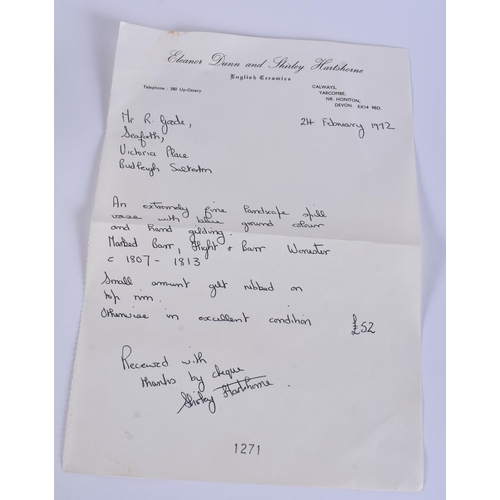 Eleanor Dunn and Shirley Hartshorne
English Ceramics
Telephone : 380 Up-Ottery
CALWAYS,
YARCOMBE,
NR. HONITON,
DEVON. EX14 9BD.
24 February 1972
Mr R. Goode,
Seaforth,
Victoria Place
Budleigh Salterton
An extremely fine landscape spill
vase with blue ground colour
and hand gilding.
Marked Barr, Flight & Barr Worcester
c 1807 - 1813
Small amount gilt rubbed on
top rim.
Otherwise in excellent condition £52
Received with
thanks by cheque
Shirley Hartshorne.
1271